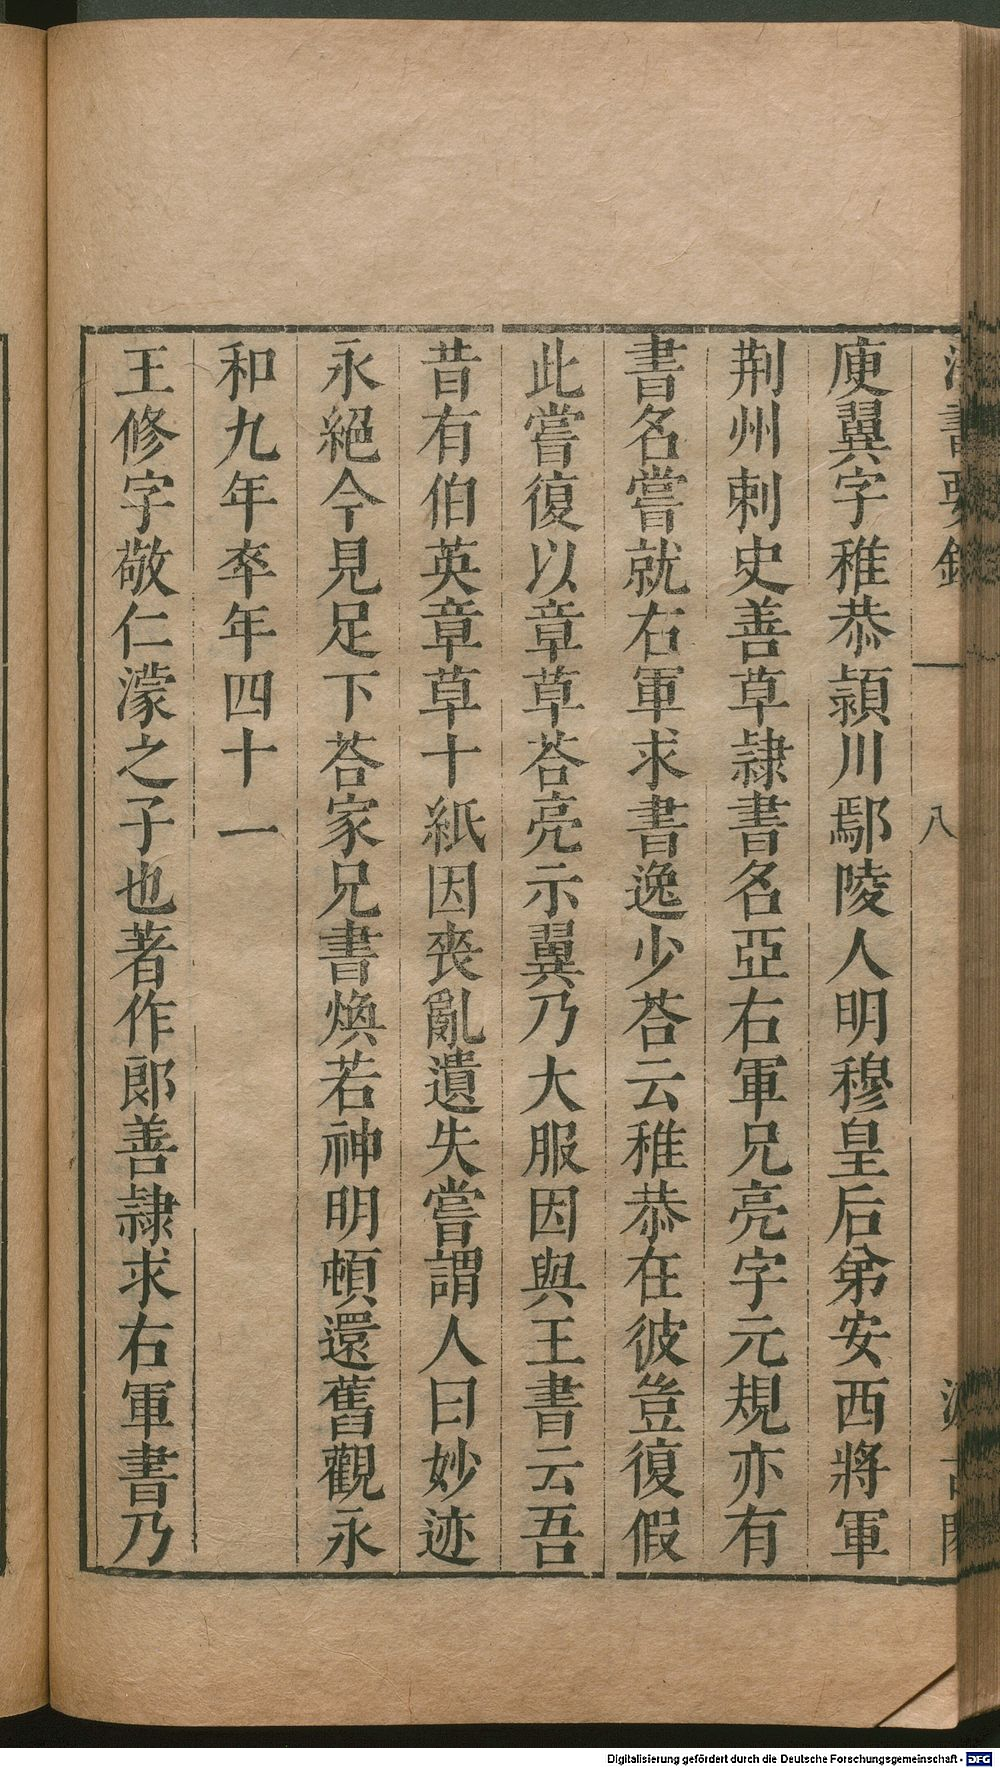 法書要錄
八
庾翼字稚恭潁川鄢陵人明穆皇后弟安西將軍
荆州刺史善草隷書名亞右軍兄亮字元規亦有
書名嘗就右軍求書逸少荅云稚恭在彼豈復假
此嘗復以章草荅亮示翼乃大服因與王書云吾
昔有伯英章草十紙因喪亂遺失嘗謂人曰妙迹
永絕今見足下荅家兄書煥若神明頓還舊觀永
和九年卒年四十一
王修字敬仁濛之子也著作郎善隷求右軍書乃
Digitalisierung gefördert durch die Deutsche Forschungsgemeinschaft - DFG